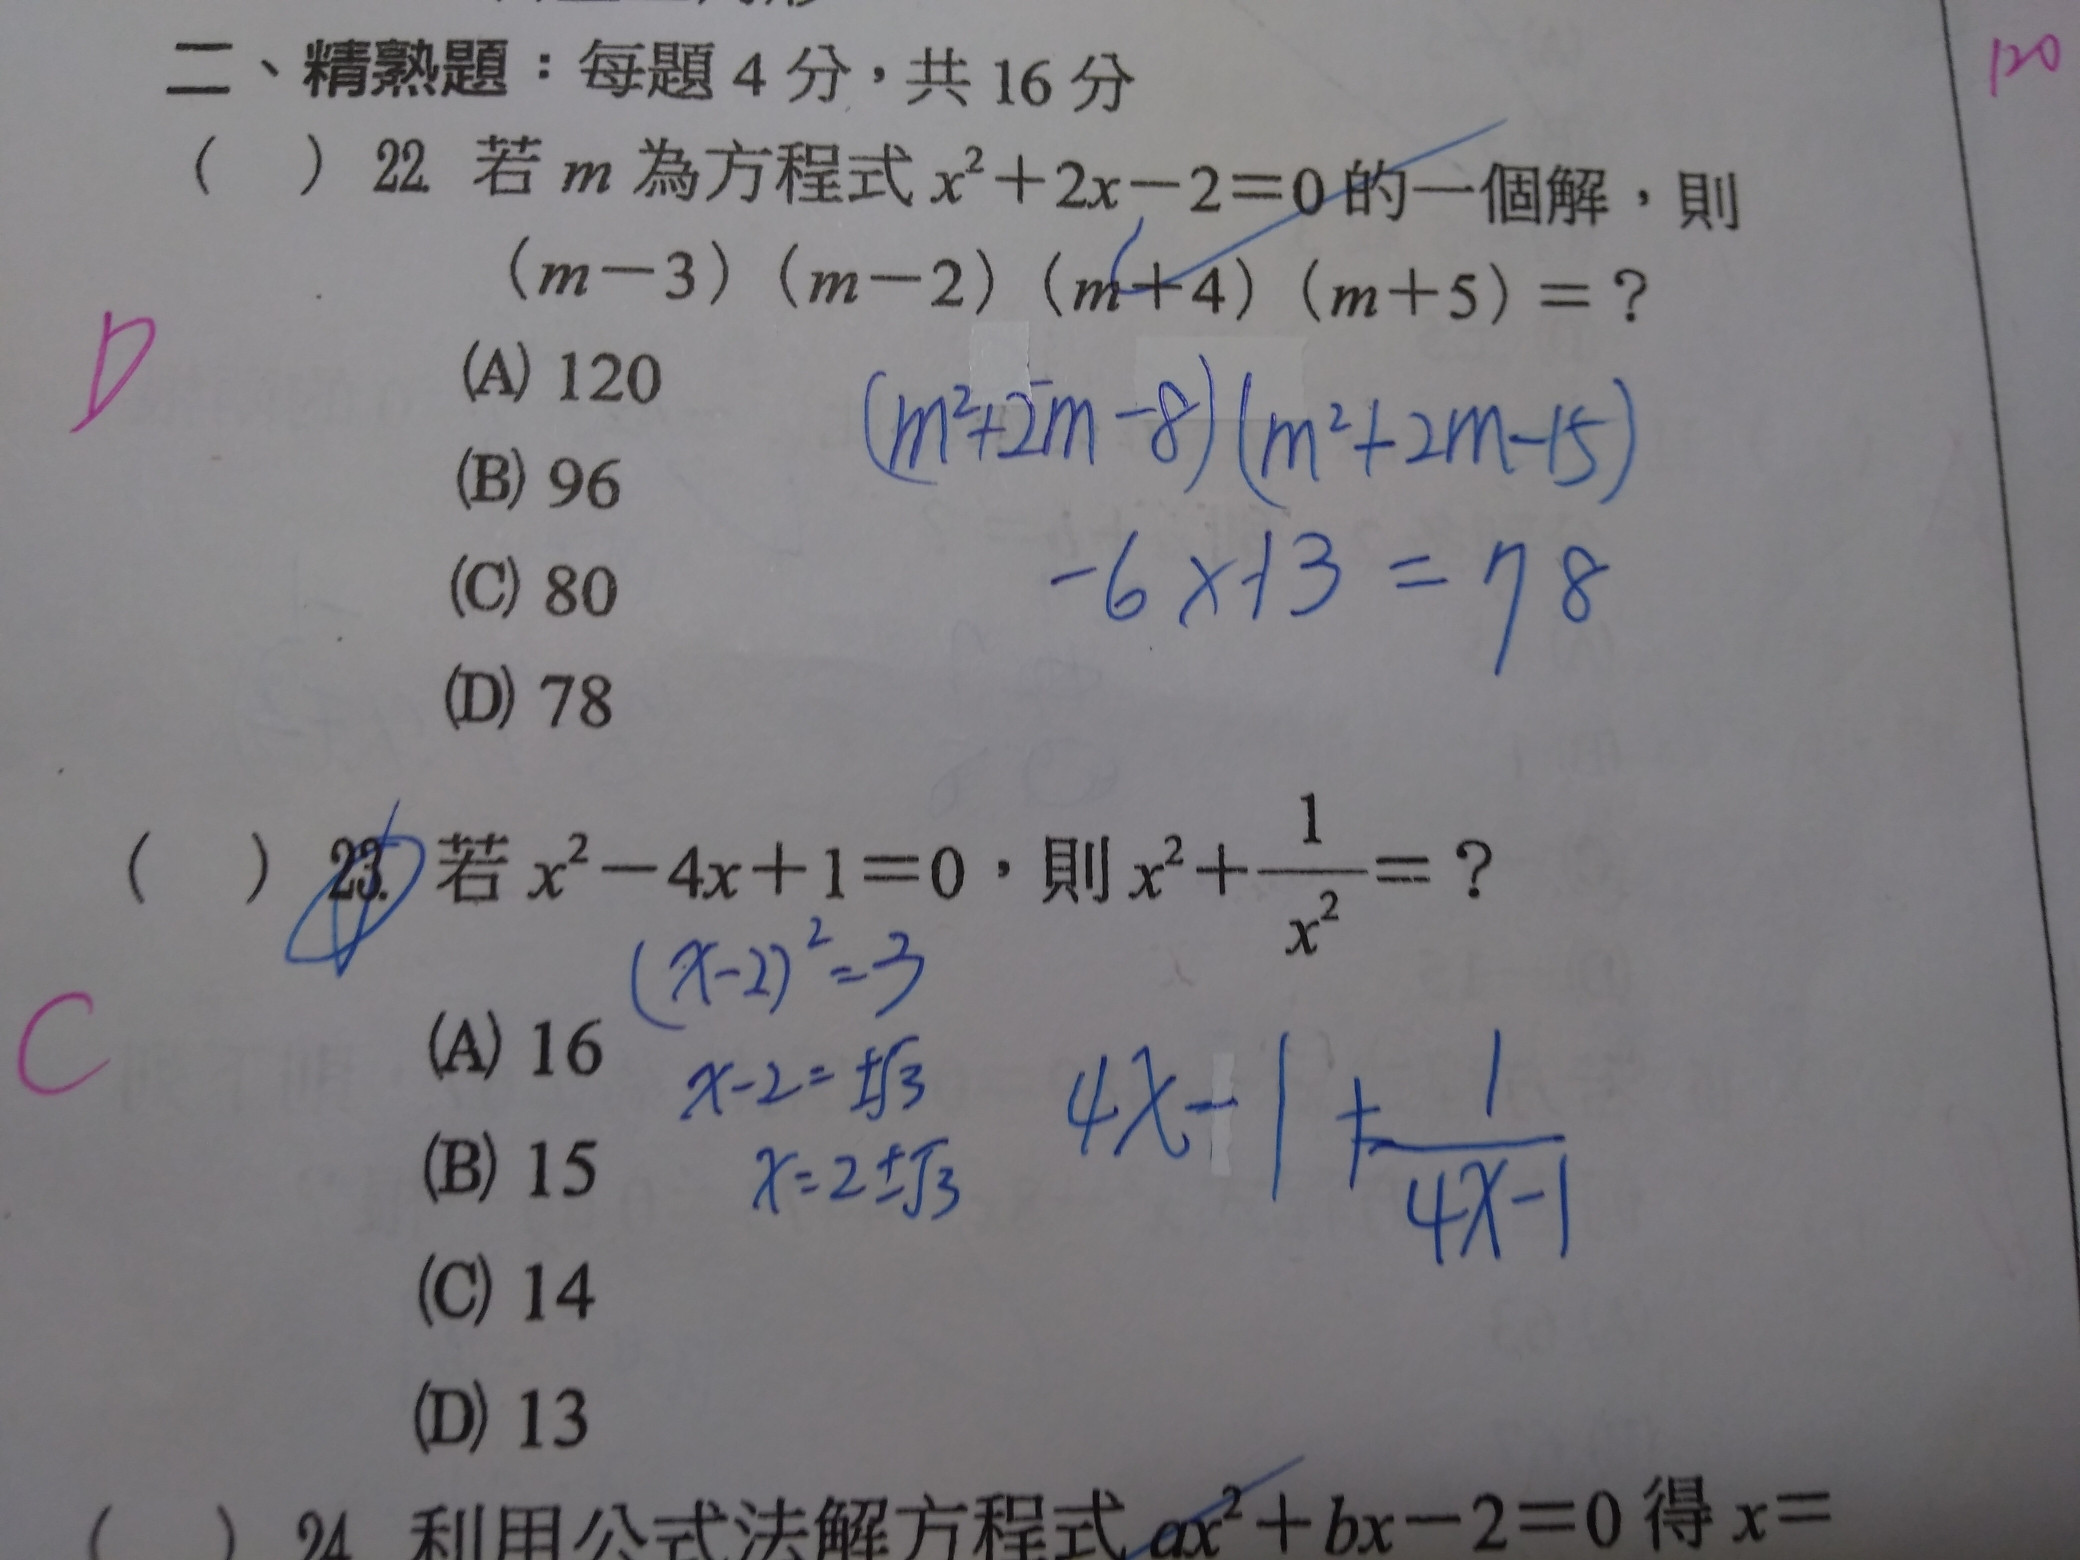 120
二、精熟題：每題 4 分，共 16 分
( ) 22. 若 m 為方程式 x²+2x－2＝0 的一個解，則
(m－3)(m－2)(m＋4)(m＋5)＝？
D
(A) 120
(m²+2m-8)(m²+2m-15)
(B) 96
-6x-13=78
(C) 80
(D) 78
( ) 23. 若 x²－4x＋1＝0，則 x²＋1/x²＝？
(x-2)²=3
C
(A) 16
x-2=±√3
4x-1+1/4x-1
(B) 15
x=2±√3
(C) 14
(D) 13
( ) 24. 利用公式法解方程式 ax²＋bx－2＝0 得 x＝